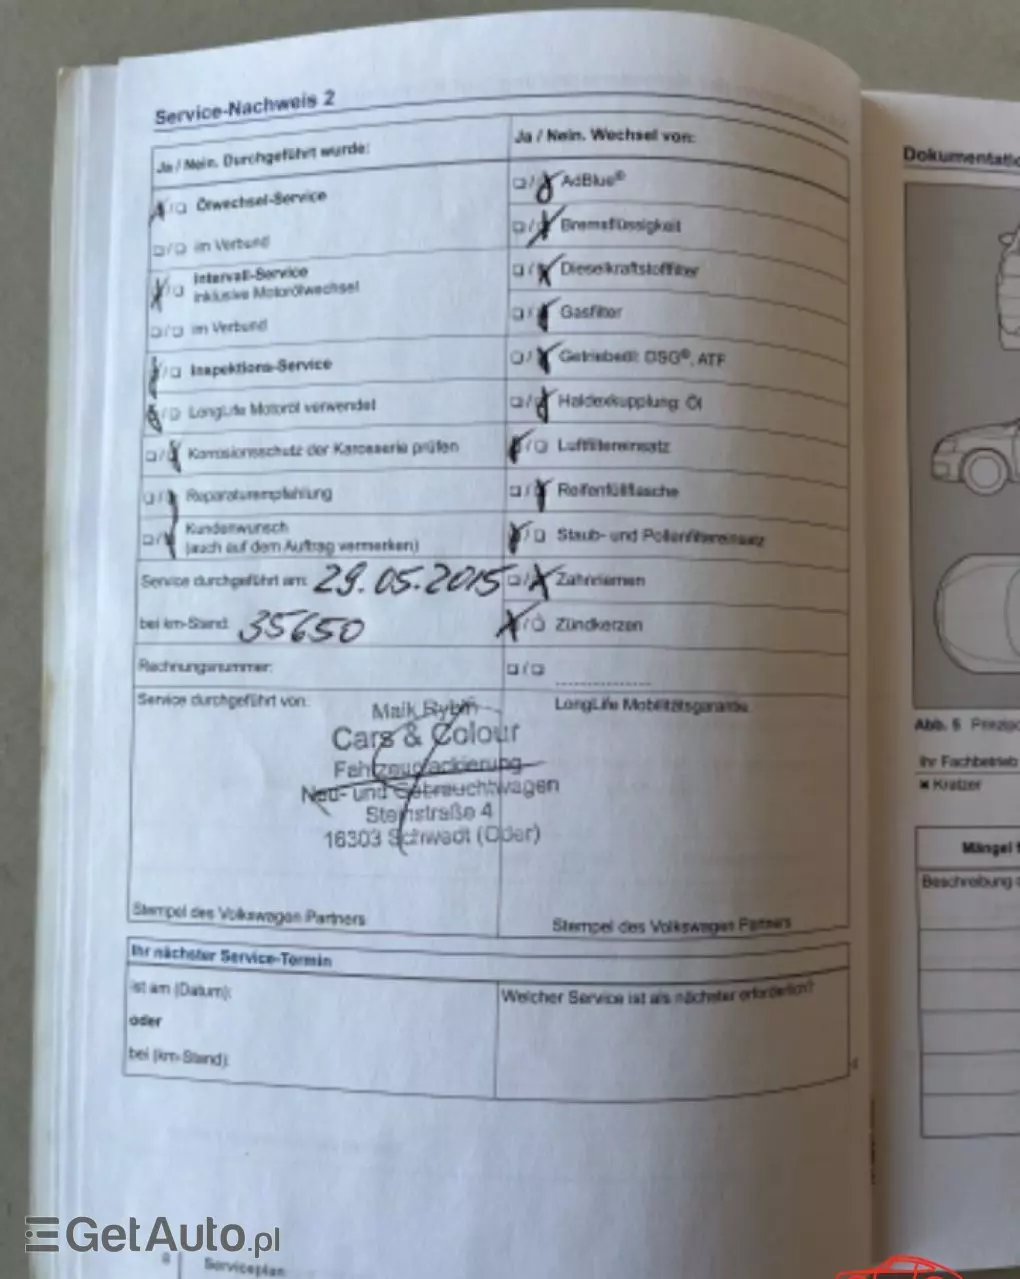 Service-Nachweis 2
Ja / Nein. Durchgeführt wurde:
Ölwechsel-Service
im Verbund
Intervall-Service
inklusive Motorölwechsel
im Verbund
Inspektions-Service
LongLife Motoröl verwendet
Korrosionsschutz der Karosserie prüfen
Reparaturempfehlung
Kundenwunsch
(auch auf dem Auftrag vermerken)
Service durchgeführt am: 29.05.2015
bei km-Stand: 35650
Rechnungsnummer:
Service durchgeführt von:
Maik Rybin
Cars & Colour
Fahrzeuglackierung
Neu- und Gebrauchtwagen
Steinstraße 4
16303 Schwedt (Oder)
Stempel des Volkswagen Partners
Ja / Nein. Wechsel von:
AdBlue®
Bremsflüssigkeit
Dieselkraftstofffilter
Gasfilter
Getriebeöl: DSG®, ATF
Haldexkupplung: Öl
Luftfiltereinsatz
Reifenfüllflasche
Staub- und Pollenfiltereinsatz
Zahnriemen
Zündkerzen
LongLife Mobilitätsgarantie
Stempel des Volkswagen Partners
Ihr nächster Service-Termin
ist am (Datum):
oder
bei (km-Stand):
Welcher Service ist als nächster erforderlich?
8 Serviceplan
Abb. 5
Ihr Fachbetrieb
Kratzer
Mängel
Beschreibung
GetAuto.pl